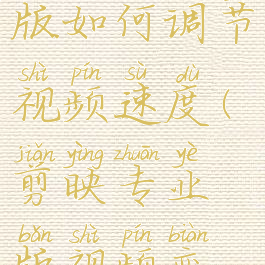 版如何调节
shì pín sù dù
视频速度(
jiǎn yìng zhuān yè
剪映专业
bǎn shì pín biàn
版视频变